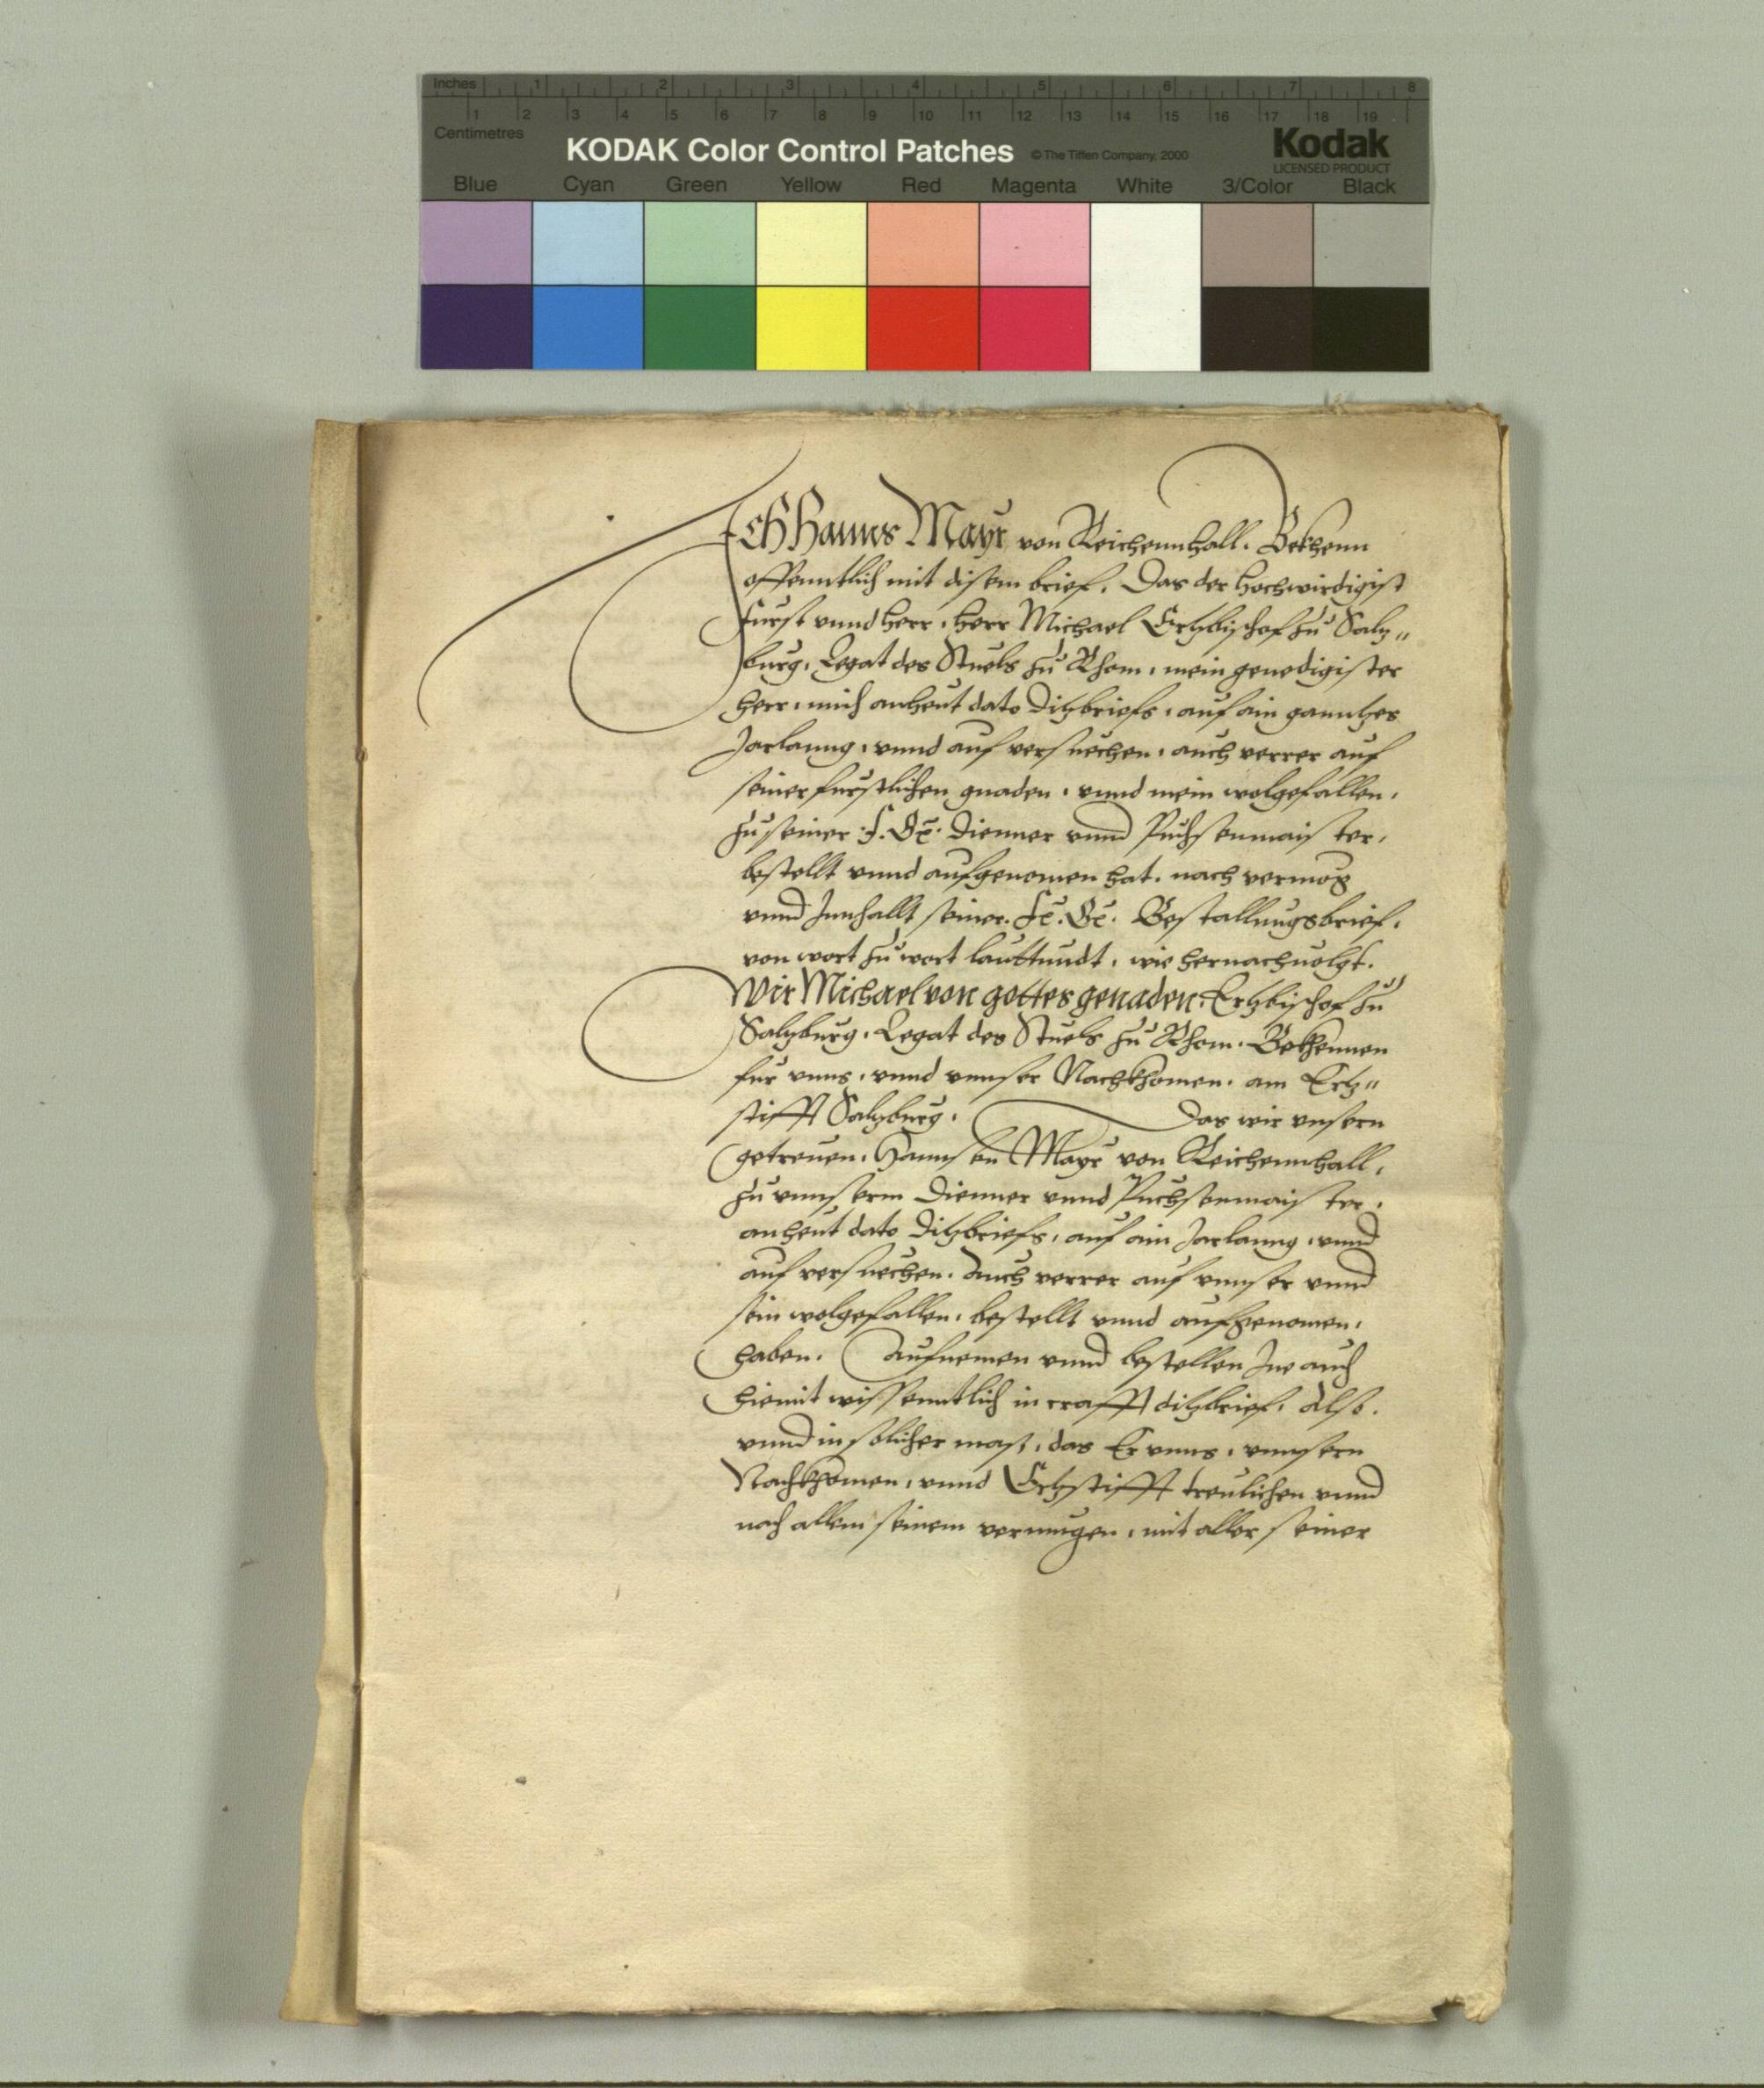 Inches 1 2 3 4 5 6 7 8
1 2 3 4 5 6 7 8 9 10 11 12 13 14 15 16 17 18 19
Centimetres
KODAK Color Control Patches © The Tiffen Company, 2000 Kodak
LICENSED PRODUCT
Blue Cyan Green Yellow Red Magenta White 3/Color Black
Ich Hanns Mayr von Reichennhall. Bekhenn
offenntlich mit disem brief. Das der hochwirdigist
fürst vnnd herr, herr Michael Ertzbischof zů Saltz„
burg, Legat des Stuels zů Rhom, mein genedigister
herr, mich anheut dato ditzbriefs, auf ain ganntzes
Jarlanng, vnnd auf versuechen, auch verrer auf
seiner furstlichen gnaden, vnnd mein wolgefallen,
zů seiner f. Gn. Dienner vnnd Puchsenmaister,
bestellt vnnd aufgenomen hat. nach vermög
vnnd Innhallt seiner. fn. Gn. Bestallungsbrief,
von wort zů wort lauttundt, wie hernachuolgt.
Wir Michael von gottes genaden, Ertzbischof zů
Saltzburg, Legat des Stuels zů Rhom. Bekhennen
für vnns, vnnd vnnser Nachkhomen, am Ertz„
stifft Saltzburg. Das wir vnsern
getreuen, Hannsen Mayr von Reichennhall,
zů vnnserm Dienner vnnd Puchsenmaister,
anheut dato ditzbriefs, auf ain Jarlanng, vnnd
auf versuechen. Auch verrer auf vnnser vnnd
sein wolgefallen, bestellt vnnd aufgenomen,
haben. Aufnemen vnnd bestellen Ine auch
hiemit wissenntlich in crafft ditzbrief. Also.
vnnd in solicher mass, das Er vnns, vnnsern
Nachkhomen, vnnd Ertzstifft treulichen vnnd
nach allem seinem vermugen, mit aller seiner